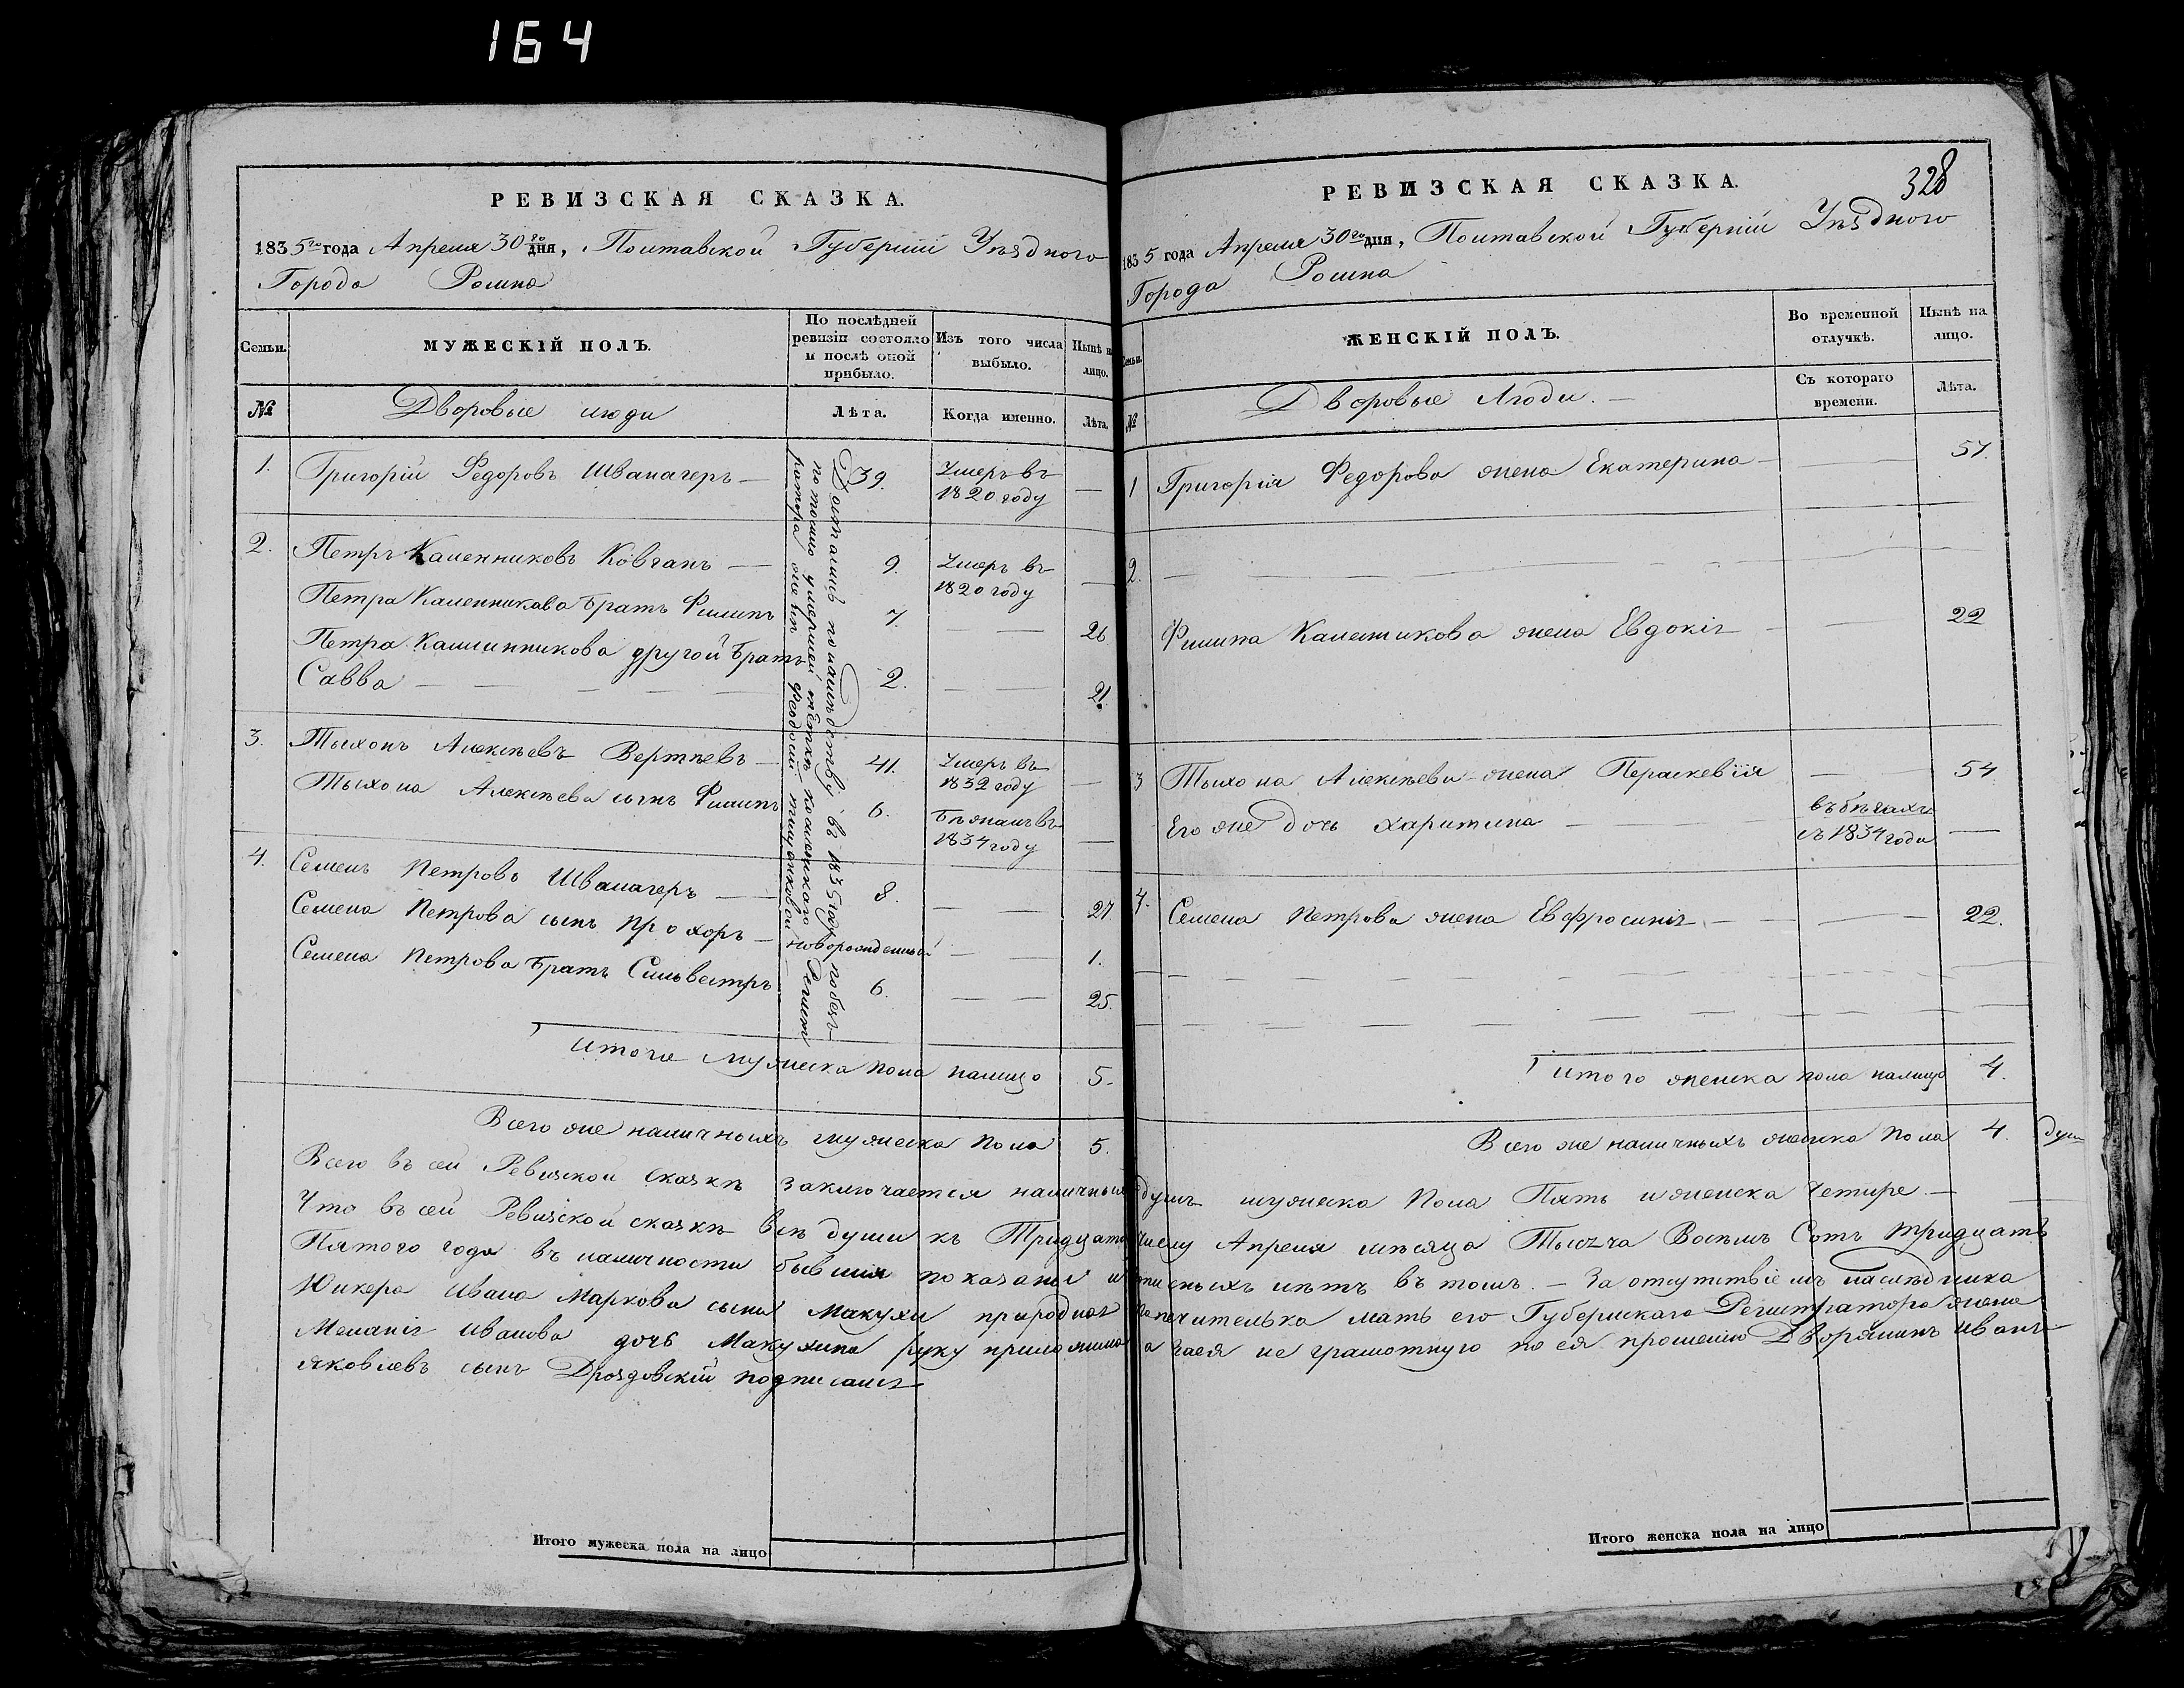 164
РЕВИЗСКАЯ СКАЗКА.
1835го года Апреля 30го дня, Полтавской Губернiи Уѣзднаго
Города Ромна
Семьи.
МУЖЕСКІЙ ПОЛЪ.
По послѣдней ревизіи состояло и послѣ оной прибыло.
Изъ того числа выбыло.
Нынѣ на лицо.
№
Дворовые люди
Лѣта.
Когда именно.
Лѣта.
1. Григорій Федоровъ Швачагеръ — 39. Умеръ въ 1820 году —
2. Петръ Каленниковъ Ковганъ — 9. Умеръ въ 1820 году —
Петра Каленникова братъ Филипъ 7. — — 26
Петра Калинникова другой братъ
Савва — — — — — 2. — — 21.
3. Тыхонъ Алексѣевъ Вертѣевъ — 41. Умеръ въ 1832 году —
Тыхона Алексѣева сынъ Филипъ 6. Бѣжалъ въ 1834 году —
4. Семенъ Петровъ Швачагеръ — 8. — — 27
Семена Петрова сынъ Прохоръ — новорожденный — — 1.
Семена Петрова братъ Сильвестръ 6. — — 25.
Досталисъ по наслѣдству въ 1835 году после
по умершей
Итого мужеска пола налицо 5.
Всего же наличныхъ мужеска пола 5.
РЕВИЗСКАЯ СКАЗКА.
328
1835 года Апреля 30го дня, Полтавской Губернiи Уѣзднаго
Города Ромна
Семьи.
ЖЕНСКІЙ ПОЛЪ.
Во временной отлучкѣ.
Нынѣ на лицо.
№
Дворовые Люди. —
Съ котораго времени.
Лѣта.
1 Григорія Федорова жена Екатерина — — 57.
2. — — — — —
Филипа Каленикова жена Евдокія — — 22
3 Тыхона Алексѣева жена Пераскевiiя — — 54
Его же дочь Харитина — въ бѣгахъ съ 1834 года —
4. Семена Петрова жена Евфросинія — — — 22.
Итого женска пола налицо 4.
Всего же наличныхъ женска пола 4. душ
Всего въ сей Ревизской сказкѣ заключается наличныхъ душъ мужеска пола Пять и женска Четире. —
Что въ сей Ревизской сказкѣ всѣ души къ Тридцатому числу Апреля мѣсяца Тысяча Восѣмъ Сотъ тридцатъ
Пятого года въ наличности бывшия показаны и писныхъ нѣтъ въ томъ. — За отсутствіемъ наследника
Юнкера Ивана Маркова сына Макухи природная попечителька мать его Губернскаго Регистратора жена
Меланiя Иванова дочь Макухина руку приложила а за ея не грамотную по ея прошенію Дворянинъ Иванъ
Яковлевъ сынъ Дроздовскій подписался
Итого мужеска пола на лицо
Итого женска пола на лицо